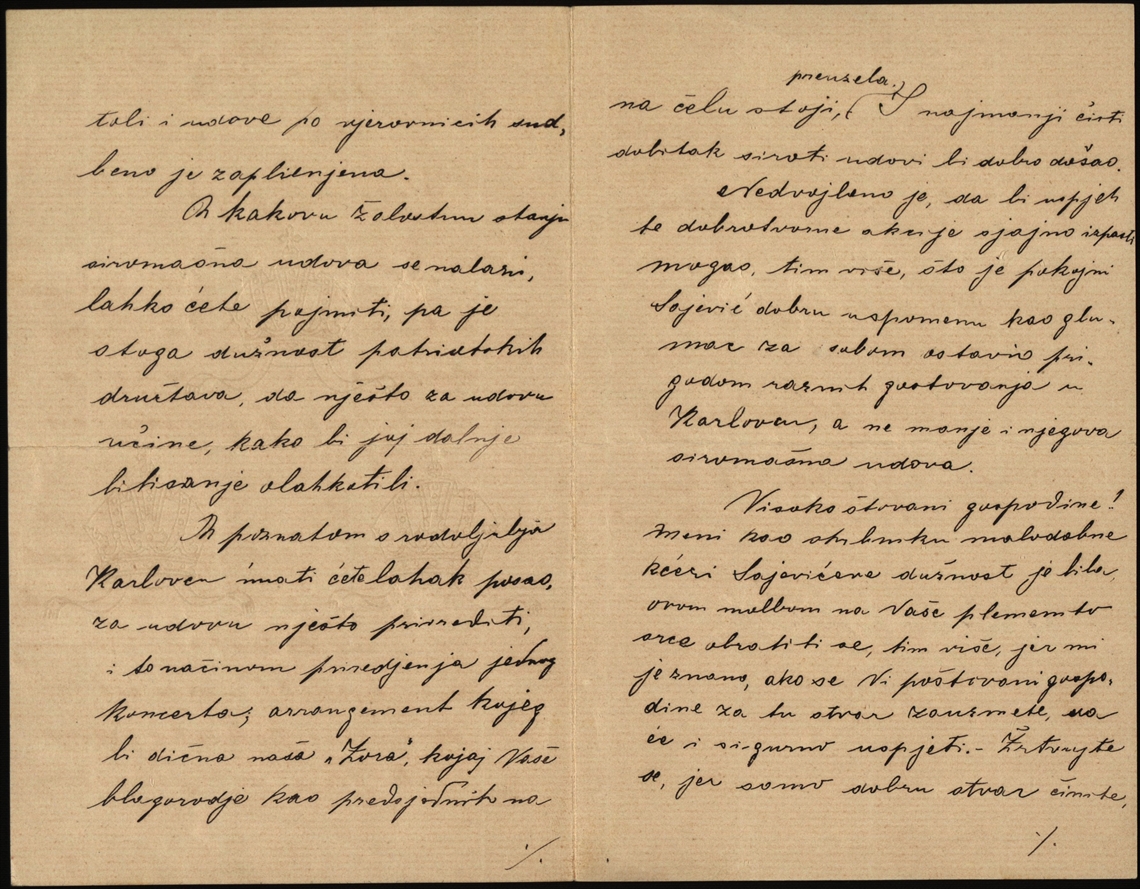 toli i udove po vjerovnicih sud,
beno je zaplienjena.
U kakovu žalostnu stanju
siromašna udova se nalazi,
lahko ćete pojmiti, pa je
stoga dužnost patriotskih
družtava, da nješto za udovu
učine, kako bi joj daljnje
bitisanje olahkotili.
U poznatom s rodoljublja
Karlovcu imati ćete lahak posao,
za udovu nješto prirediti,
i to načinom priredjenja jednog
koncerta; arrangement kojeg
bi dična naša „Zora", kojoj Vaše
blagorodje kao predsjednik na
/.
preuzela.
na čelu stoji, ( I najmanji čisti
dobitak siroti udovi bi dobro došao.
Nedvojbeno je, da bi uspjeh
te dobrotvorne akcije sjajno izpasti
mogao, tim više, što je pokojni
Sajević dobru uspomenu kao glu-
mac za sobom ostavio pri-
godom raznih gostovanja u
Karlovcu, a ne manje i njegova
siromašna udova.
Visoko štovani gospodine!
Meni kao skrbniku malodobne
kćeri Sajevićeve dužnost je bila,
ovom molbom na Vaše plemenito
srce obratiti se, tim više, jer mi
je znano, ako se Vi poštovani gospo-
dine za tu stvar zauzmete, da
će i sigurno uspjeti.- Žrtvujte
se, jer samo dobru stvar činite,
/.